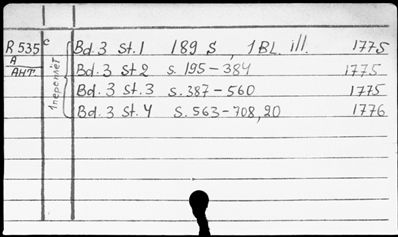 R 535 c Bd. 3 St. 1 189 S, 1 BL. ill. 1775
A Bd. 3 St 2 S. 195-384 1775
АНТ. 1 переплёт Bd. 3 St. 3 S. 387-560 1775
Bd. 3 St. 4 S. 563-708, 20 1776